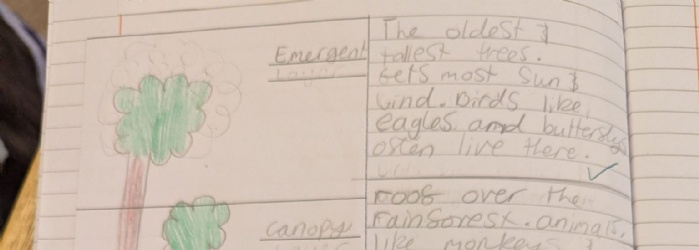 Emergent
Layer
The oldest &
tallest trees.
Gets most sun &
wind. Birds like
eagles and butterflys
often live there.
Canopy
Layer
roof over the
rainforest. animals,
like monkeys